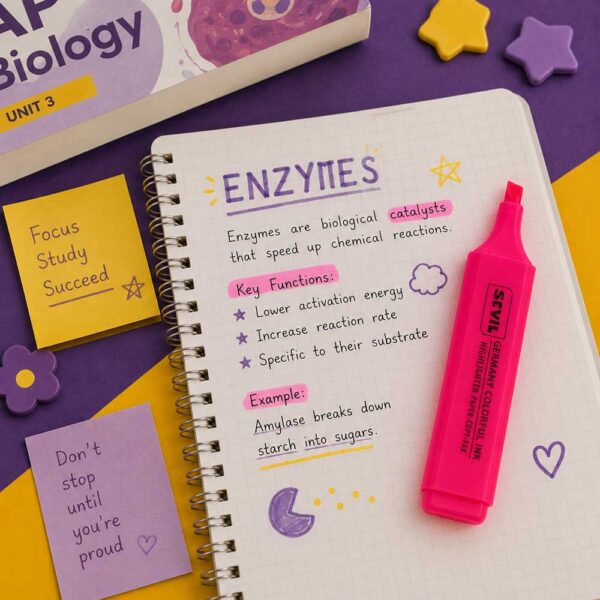 AP
Biology
UNIT 3
Focus
Study
Succeed
Don't
stop
until
you're
proud
ENZYMES
Enzymes are biological catalysts
that speed up chemical reactions.
Key Functions:
Lower activation energy
Increase reaction rate
Specific to their substrate
Example:
Amylase breaks down
starch into sugars.
GERMANY COLORFUL INK
HIGHLIGHTER PAPER·COPY·FAX